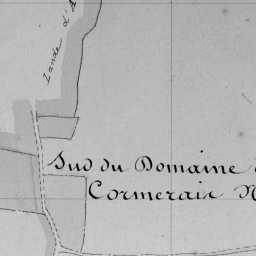 Lande d'A
Sud du Domaine
Cormerais N